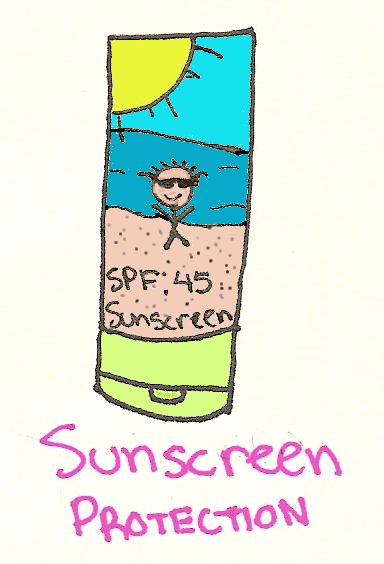 SPF: 45
Sunscreen
Sunscreen
PROTECTION